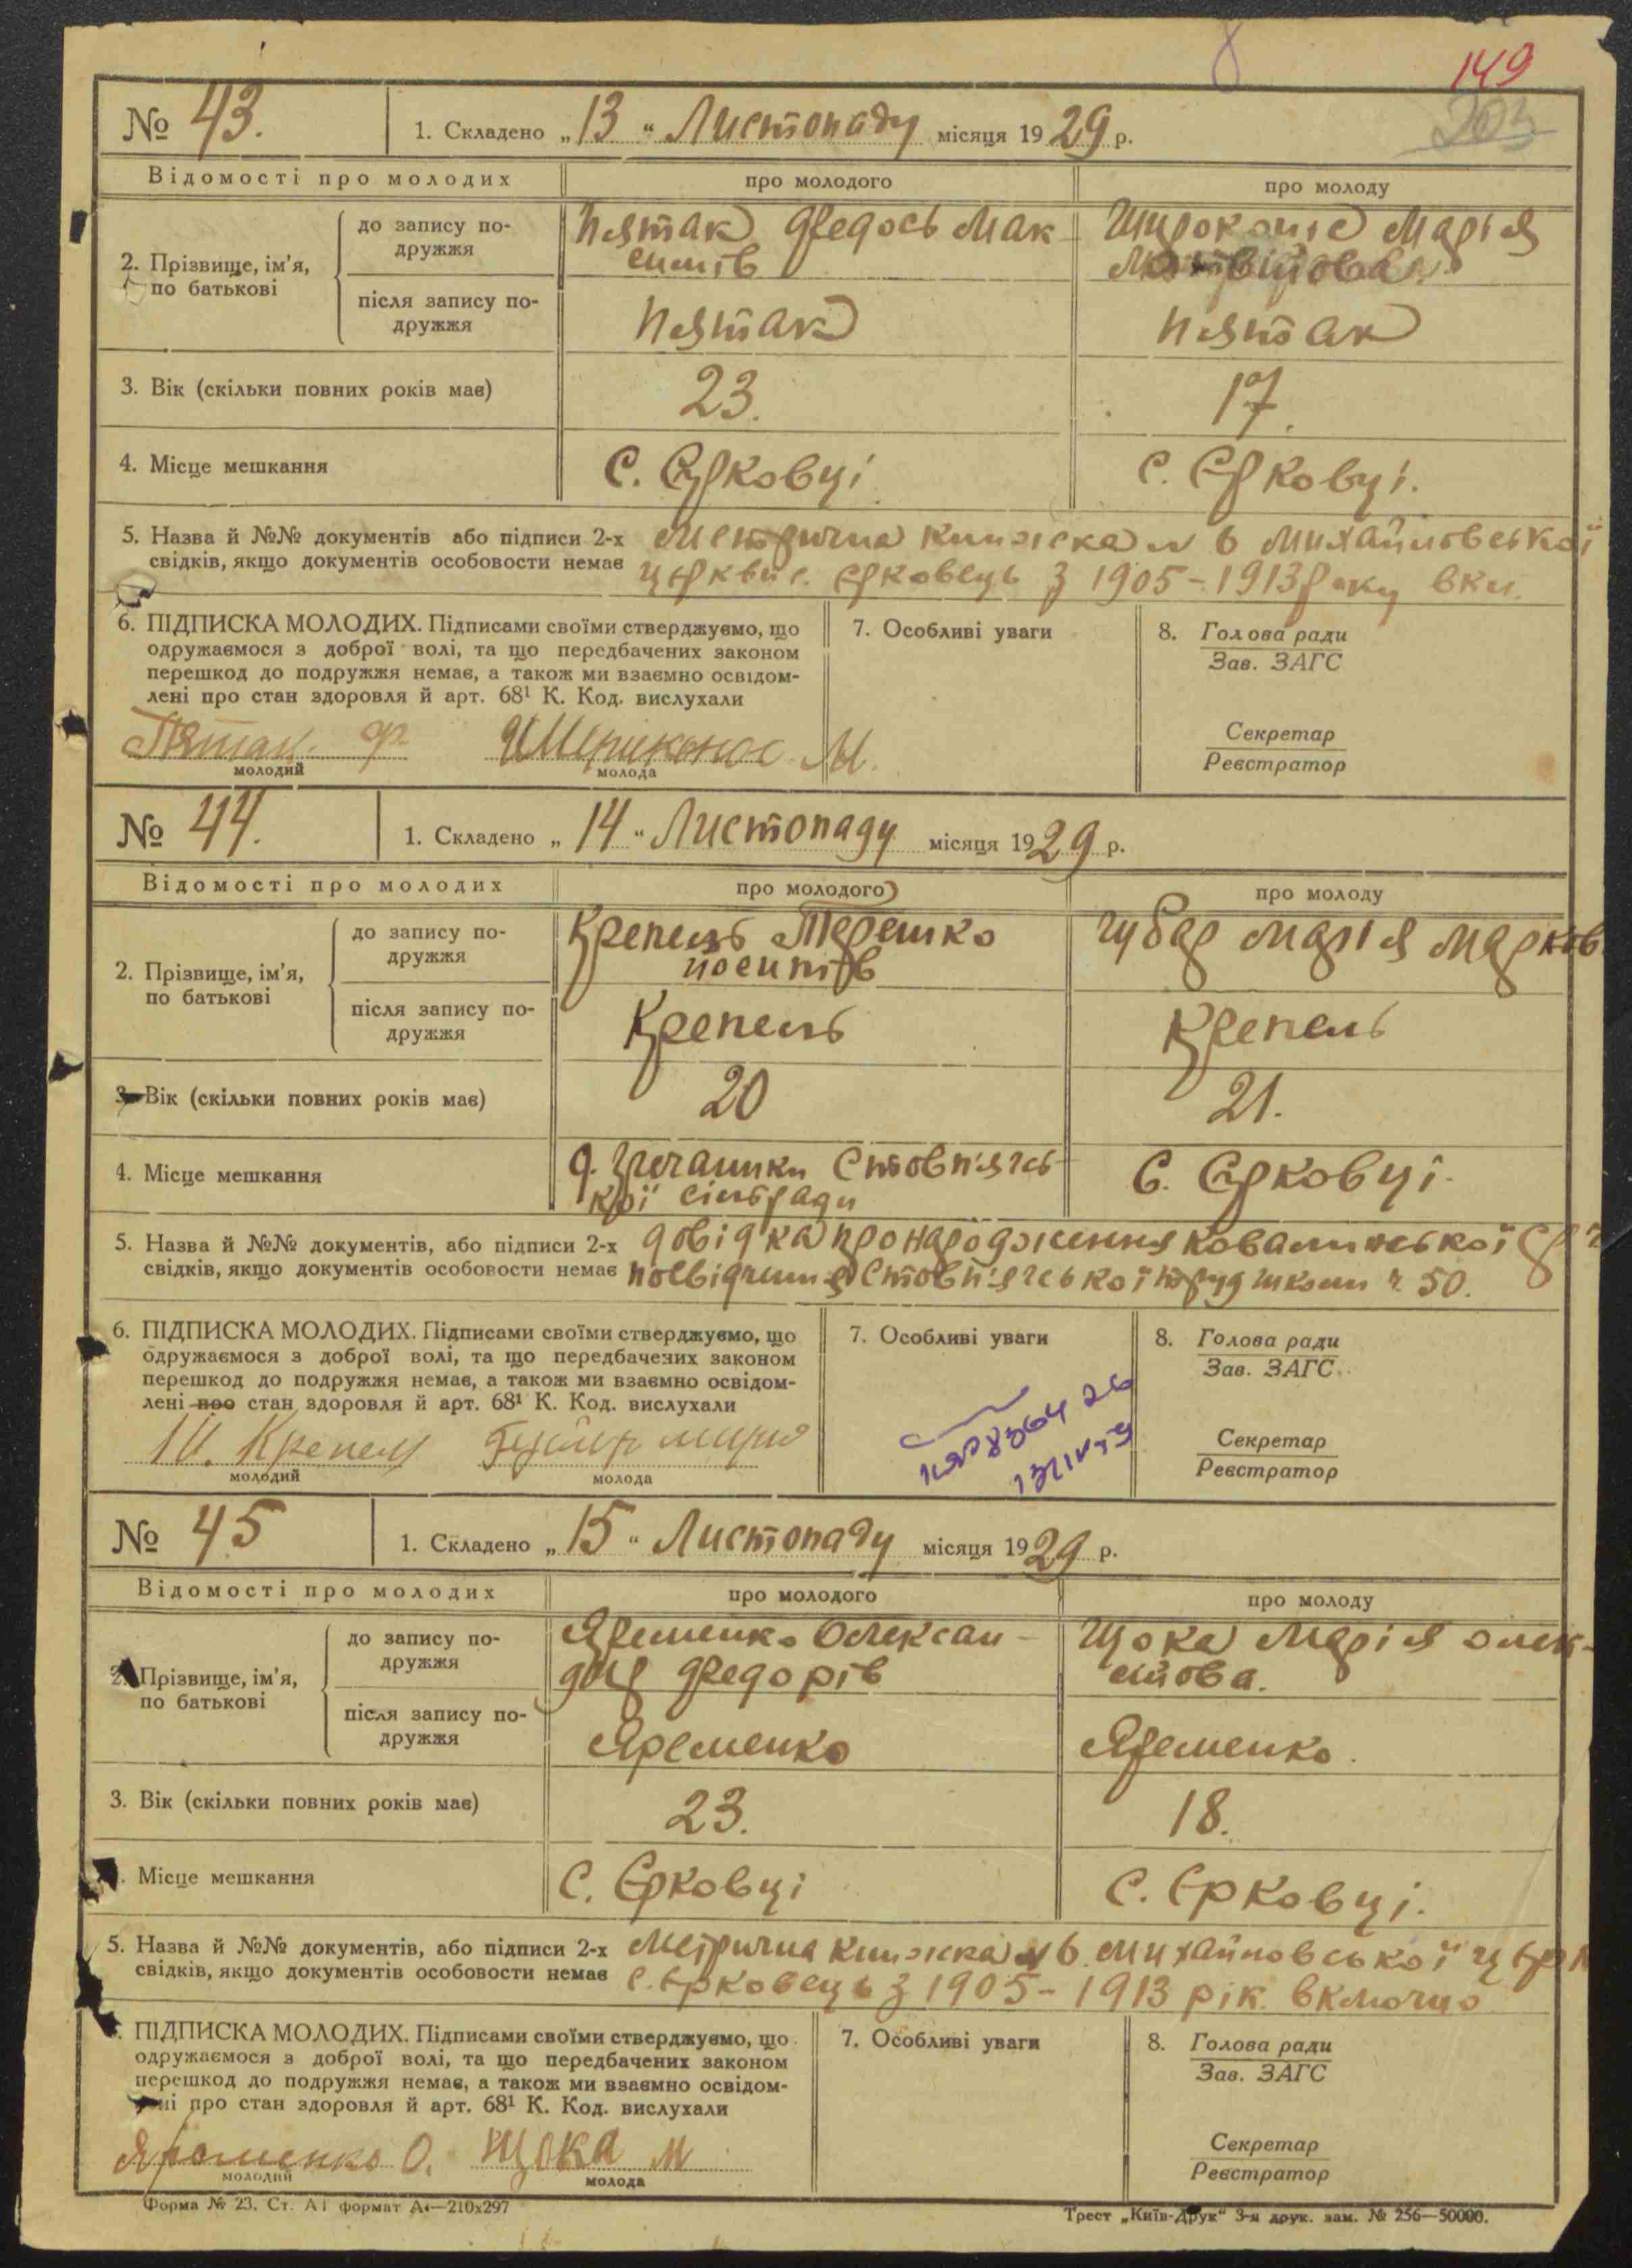 149
203
№ 43. 1. Складено „13“ Листопаду місяця 1929 р.
Відомості про молодих про молодого про молоду
2. Прізвище, ім’я, по батькові
до запису подружжя
Пятак Федось Мак
симів
Широконіс Марія
після запису по-
дружжя
Пятак Пятак
3. Вік (скільки повних років має) 23. 17.
4. Місце мешкання С. Єрковці С. Єрковці.
5. Назва й №№ документів або підписи 2-х Метрична книжка № 6 Михайловської
свідків, якщо документів особовости немає церкви с. Єрковець з 1905–1913 року вкл.
6. ПІДПИСКА МОЛОДИХ. Підписами своїми стверджуємо, що
одружаємося з доброї волі, та що передбачених законом
перешкод до подружжя немає, а також ми взаємно освідом-
лені про стан здоровля й арт. 68¹ К. Код. вислухали
Пятак Ф. М.
молодий молода
7. Особливі уваги
8. Голова ради
Зав. ЗАГС
Секретар
Реєстратор
№ 44. 1. Складено „14“ Листопаду місяця 1929 р.
Відомості про молодих про молодого про молоду
2. Прізвище, ім’я,
по батькові
до запису по-
дружжя
Крепель Терешко
йосипів
Чубар Марія Марков.
після запису по-
дружжя
Крепель Крепель
3. Вік (скільки повних років має) 20 21.
4. Місце мешкання Стовп'ягсь-
кої сільради
С. Єрковці.
5. Назва й №№ документів, або підписи 2-х довідка про народження Ковалинської
свідків, якщо документів особовости немає Стовп'ягської ч. 50.
6. ПІДПИСКА МОЛОДИХ. Підписами своїми стверджуємо, що
одружаємося з доброї волі, та що передбачених законом
перешкод до подружжя немає, а також ми взаємно освідом-
лені про стан здоровля й арт. 68¹ К. Код. вислухали
Крепель
молодий молода
7. Особливі уваги
8. Голова ради
Зав. ЗАГС
Секретар
Реєстратор
№ 45 1. Складено „15“ Листопаду місяця 1929 р.
Відомості про молодих про молодого про молоду
2. Прізвище, ім’я,
по батькові
до запису по-
дружжя
Яременко Олексан-
дер Федорів
Щока Марія Олек-
сійова.
після запису по-
дружжя
Яременко Яременко.
3. Вік (скільки повних років має) 23. 18.
4. Місце мешкання С. Єрковці С. Єрковці.
5. Назва й №№ документів, або підписи 2-х Метрична книжка № 6 Михайловської церк
свідків, якщо документів особовости немає с. Єрковець з 1905–1913 рік включно
6. ПІДПИСКА МОЛОДИХ. Підписами своїми стверджуємо, що
одружаємося з доброї волі, та що передбачених законом
перешкод до подружжя немає, а також ми взаємно освідом-
лені про стан здоровля й арт. 68¹ К. Код. вислухали
Яроменко О. Щока М
молодий молода
7. Особливі уваги
8. Голова ради
Зав. ЗАГС
Секретар
Реєстратор
Форма № 23. Ст. А1 формат А4—210х297 Трест „Київ-Друк“ 3-я друк. зам. № 256—50000.